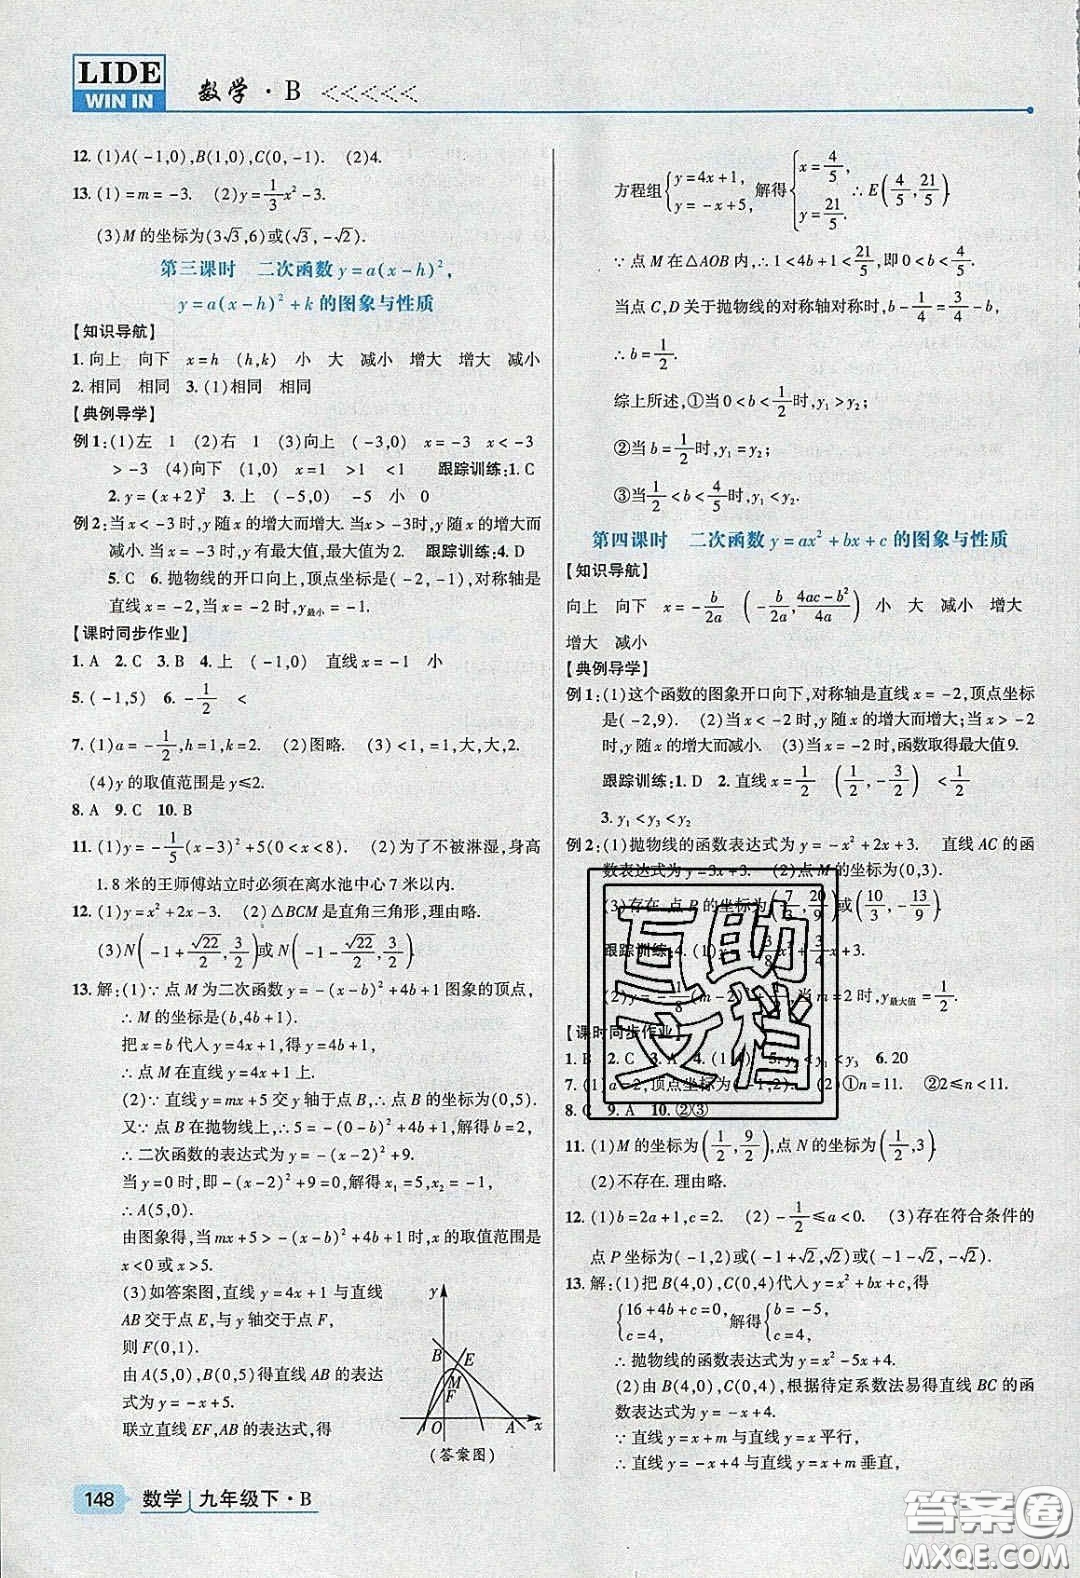 LIDE
WIN IN
数学·B
12. (1)A(-1,0),B(1,0),C(0,-1). (2)4.
13. (1)=m=-3. (2)y=1/3x²-3.
(3)M的坐标为(3√3,6)或(√3,-√2).
第三课时 二次函数y=a(x-h)²,
y=a(x-h)²+k的图象与性质
【知识导航】
1. 向上 向下 x=h (h,k) 小 大 减小 增大 增大 减小
2. 相同 相同 3. (1)相同 相同
【典例导学】
例1:(1)左 1 (2)右 1 (3)向上 (-3,0) x=-3 x<-3
>-3 (4)向下 (1,0) x=1 >1 <1 跟踪训练:1. C
2. y=(x+2)² 3. 上 (-5,0) -5 小 0
例2:当x<-3时,y随x的增大而增大.当x>-3时,y随x的增大而
减小.当x=-3时,y有最大值,最大值为-2. 跟踪训练:4. D
5. C 6. 抛物线的开口向上,顶点坐标是(-2,-1),对称轴是
直线x=-2,当x=-2时,y最小=-1.
【课时同步作业】
1. A 2. C 3. B 4. 上 (-1,0) 直线x=-1 小
5. (-1,5) 6. -1/2 <
7. (1)a=-1/2,h=1,k=2. (2)图略. (3)<1,=1,大,大,2.
(4)y的取值范围是y≤2.
8. A 9. C 10. B
11. (1)y=-1/5(x-3)²+5(0<x<8). (2)为了不被淋湿,身高
1.8米的王师傅站立时必须在离水池中心7米以内.
12. (1)y=x²+2x-3. (2)△BCM是直角三角形,理由略.
(3)N(-1+√22/2,3/2)或N(-1-√22/2,3/2).
13. 解:(1)∵点M为二次函数y=-(x-b)²+4b+1图象的顶点,
∴M的坐标是(b,4b+1).
把x=b代入y=4x+1,得y=4b+1,
∴点M在直线y=4x+1上.
(2)∵直线y=mx+5交y轴于点B,∴点B坐标为(0,5).
又∵点B在抛物线上,∴5=-(0-b)²+4b+1,解得b=2,
∴二次函数的表达式为y=-(x-2)²+9.
当y=0时,即-(x-2)²+9=0,解得x₁=5,x₂=-1,
∴A(5,0).
由图象得,当mx+5>-(x-b)²+4b+1时,x的取值范围是
x<0或x>5.
(3)如答案图,直线y=4x+1与直线
AB交于点E,与y轴交于点F,
则F(0,1).
由A(5,0),B(0,5)得直线AB的表达
式为y=-x+5.
联立直线EF,AB的表达式,得
y
B
E
M
F
O
A
x
(答案图)
方程组{y=4x+1, y=-x+5, 解得{x=4/5, y=21/5. ∴E(4/5,21/5).
∵点M在△AOB内,∴1<4b+1<21/5,即0<b<4/5.
当点C,D关于抛物线的对称轴对称时,b-1/4=3/4-b,
∴b=1/2.
综上所述,①当0<b<1/2时,y₁>y₂;
②当b=1/2时,y₁=y₂;
③当1/2<b<4/5时,y₁<y₂.
第四课时 二次函数y=ax²+bx+c的图象与性质
【知识导航】
向上 向下 x=-b/2a (-b/2a,4ac-b²/4a) 小 大 减小 增大
增大 减小
【典例导学】
例1:(1)这个函数的图象开口向下,对称轴是直线x=-2,顶点坐标
是(-2,9). (2)当x<-2时,y随x的增大而增大;当x>-2
时,y随x的增大而减小. (3)当x=-2时,函数取得最大值9.
跟踪训练:1. D 2. 直线x=1/2 (1/2,-3/2) <1/2
3. y₁<y₃<y₂
例2:(1)抛物线的函数表达式为y=-x²+2x+3, 直线AC的函
数表达式为y=3x+3. (2)点M的坐标为(0,3).
(3)存在,点P的坐标为(7/3,20/9)或(10/3,-13/9).
跟踪训练:4. (1)y=-3/8x²+3/4x+3.
(2)y=-1/8(m-2)²+1/2,当m=2时,y最大值=1/2.
【课时同步作业】
1. B 2. C 3. A 4. (1,4) 5. y₂<y₁<y₃ 6. 20
7. (1)a=2,顶点坐标为(-1,2). (2)①n=11. ②2≤n<11.
8. C 9. A 10. ②③
11. (1)M的坐标为(1/2,9/2),点N的坐标为(1/2,3).
(2)不存在.理由略.
12. (1)b=2a+1,c=2. (2)-1/2≤a<0. (3)存在符合条件的
点P坐标为(-1,2)或(-1+√2,√2)或(-1-√2,-√2).
13. 解:(1)把B(4,0),C(0,4)代入y=x²+bx+c,得
{16+4b+c=0, c=4, 解得{b=-5, c=4,
∴抛物线的函数表达式为y=x²-5x+4.
(2)由B(4,0),C(0,4),根据待定系数法易得直线BC的函
数表达式为y=-x+4.
∵直线y=-x+4与直线y=-x平行,
∵直线y=-x与直线y=x垂直,
互助
文档
148 数学 九年级下·B
答案圈
MXQE.COM